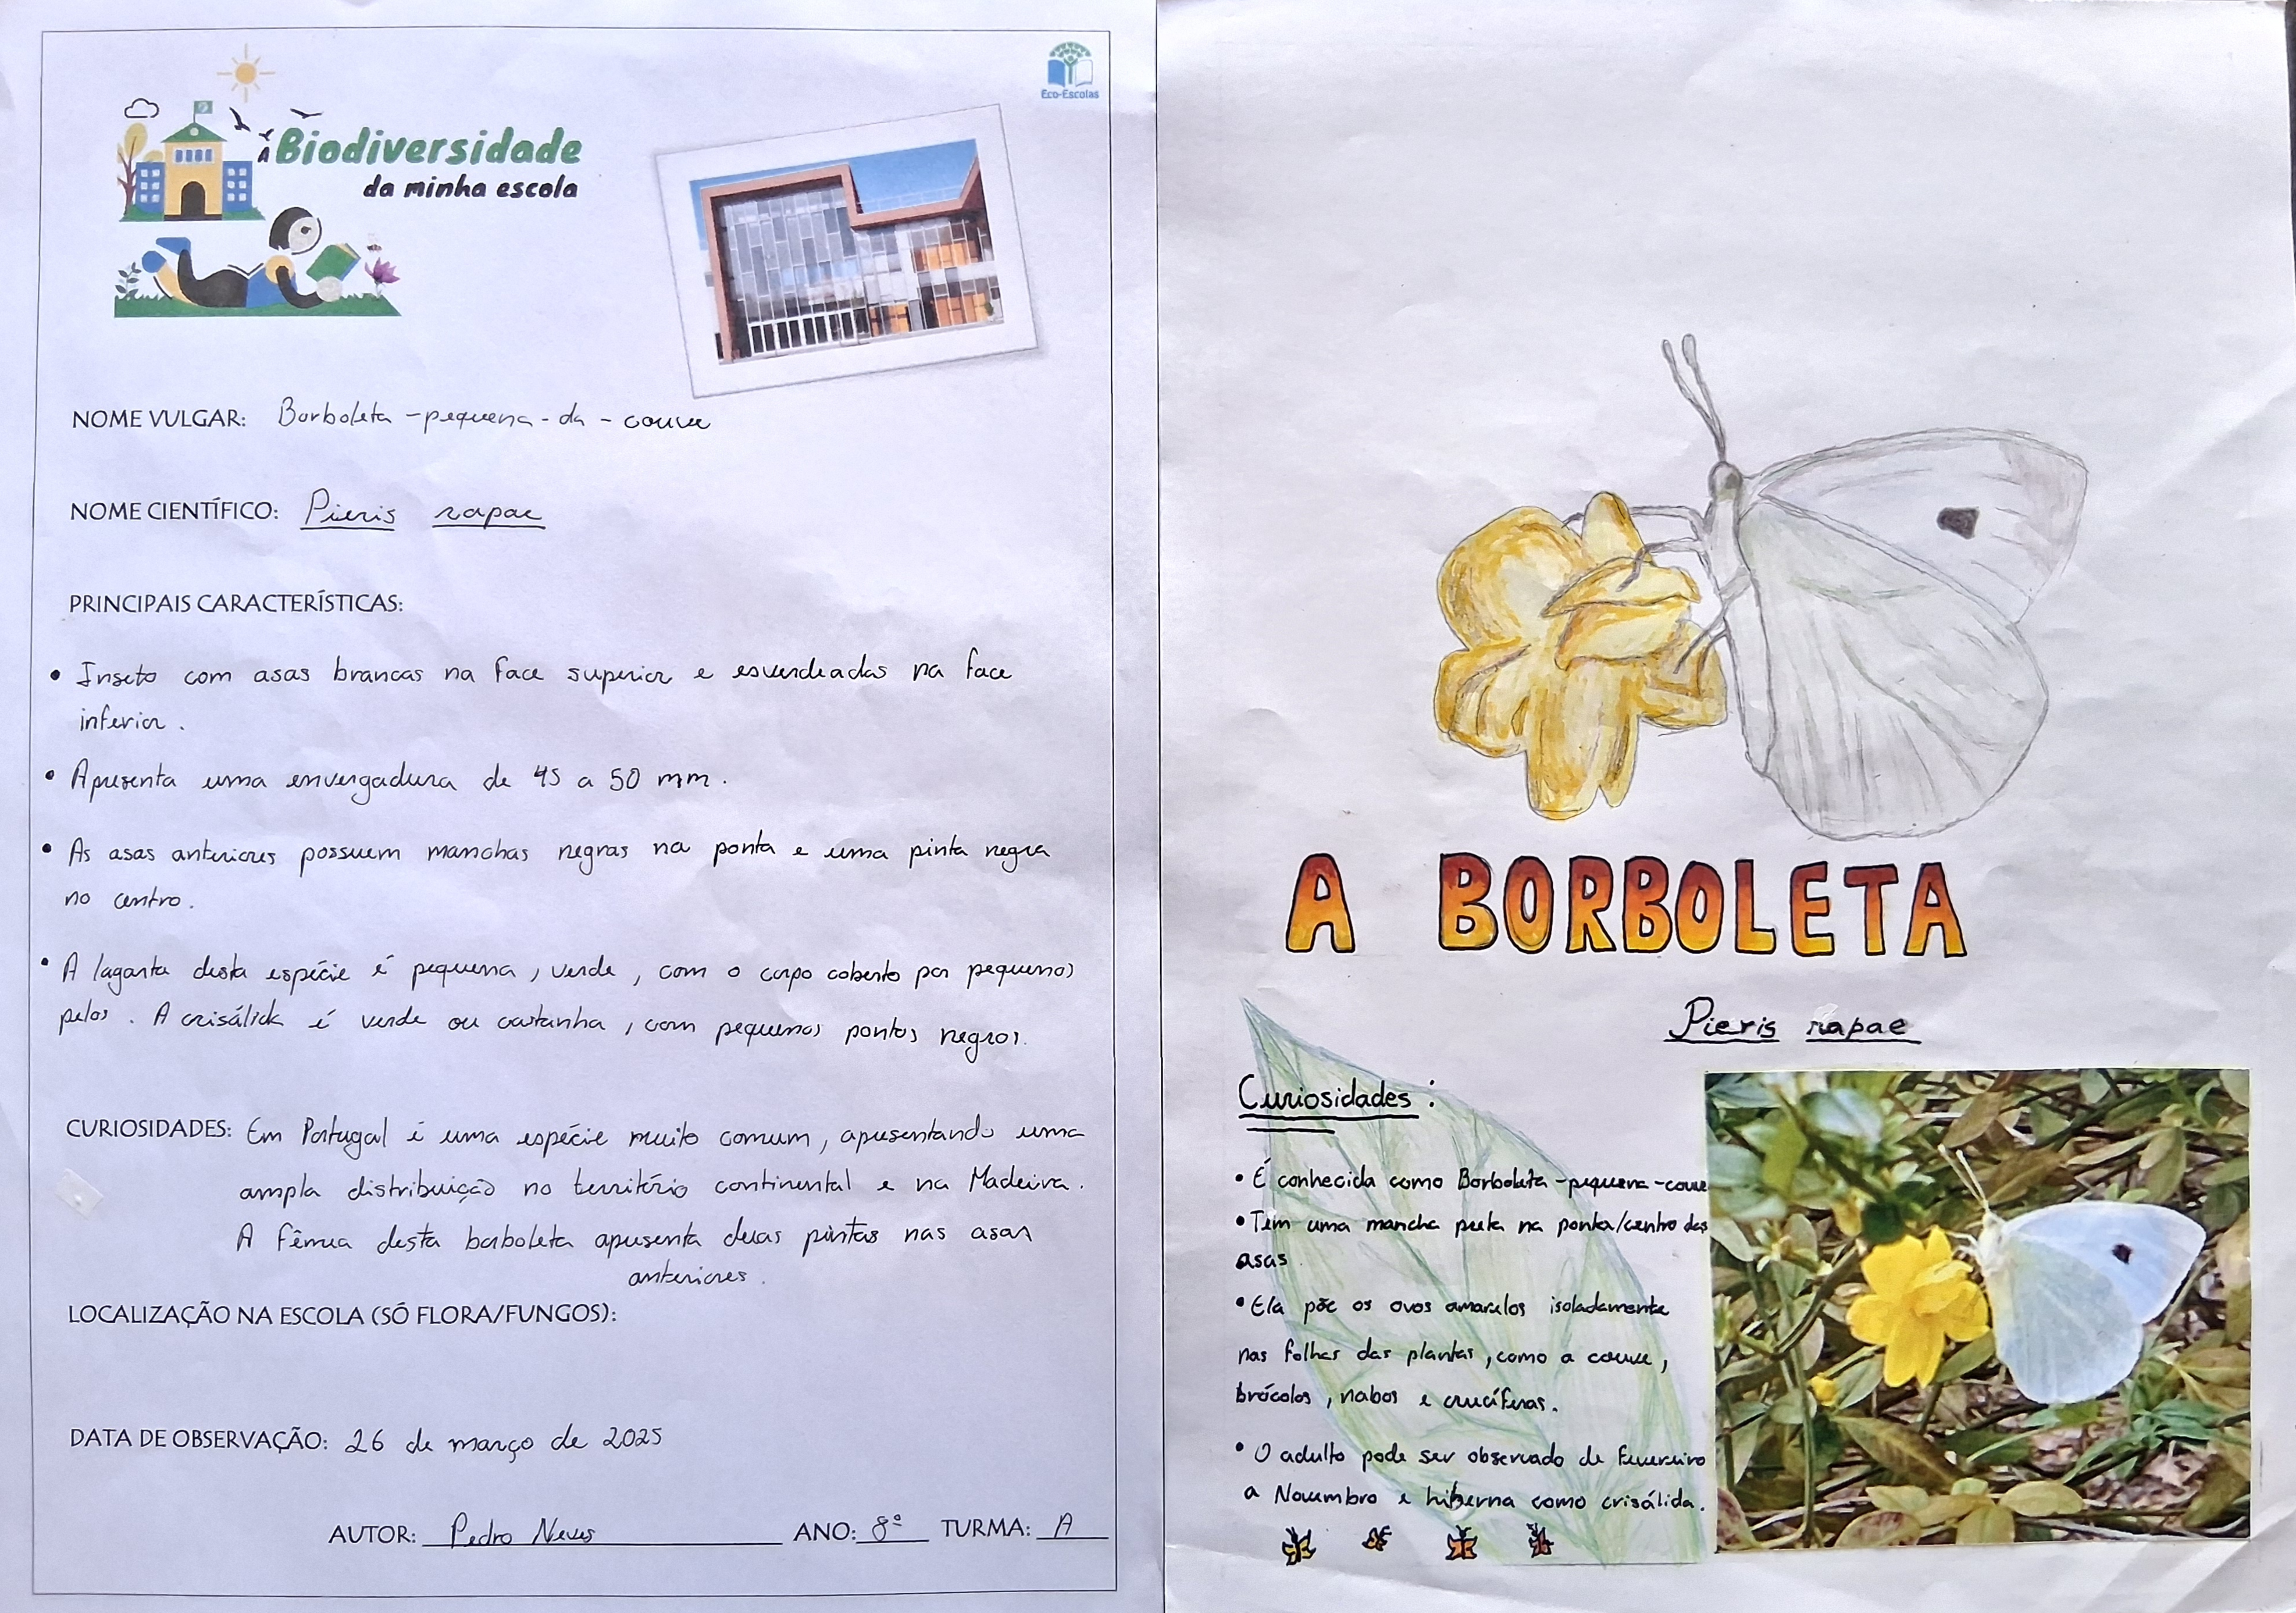 Eco-Escolas
A Biodiversidade
da minha escola
NOME VULGAR: Borboleta-pequena-da-couve
NOME CIENTÍFICO: Pieris rapae
PRINCIPAIS CARACTERÍSTICAS:
• Inseto com asas brancas na face superior e esverdeadas na face
inferior.
• Apresenta uma envergadura de 45 a 50 mm.
• As asas anteriores possuem manchas negras na ponta e uma pinta negra
no centro.
• A lagarta desta espécie é pequena, verde, com o corpo coberto por pequenos
pelos. A crisálida é verde ou castanha, com pequenos pontos negros.
CURIOSIDADES: Em Portugal é uma espécie muito comum, apresentando uma
ampla distribuição no território continental e na Madeira.
A fêmea desta borboleta apresenta duas pintas nas asas
anteriores.
LOCALIZAÇÃO NA ESCOLA (SÓ FLORA/FUNGOS):
DATA DE OBSERVAÇÃO: 26 de março de 2025
AUTOR: Pedro Neves ANO: 8º TURMA: A
A BORBOLETA
Pieris rapae
Curiosidades:
• É conhecida como Borboleta-pequena-couve
• Tem uma mancha preta na ponta/centro das
asas.
• Ela põe os ovos amarelos isoladamente
nas folhas das plantas, como a couve,
brócolos, nabos e crucíferas.
• O adulto pode ser observado de Fevereiro
a Novembro e hiberna como crisálida.